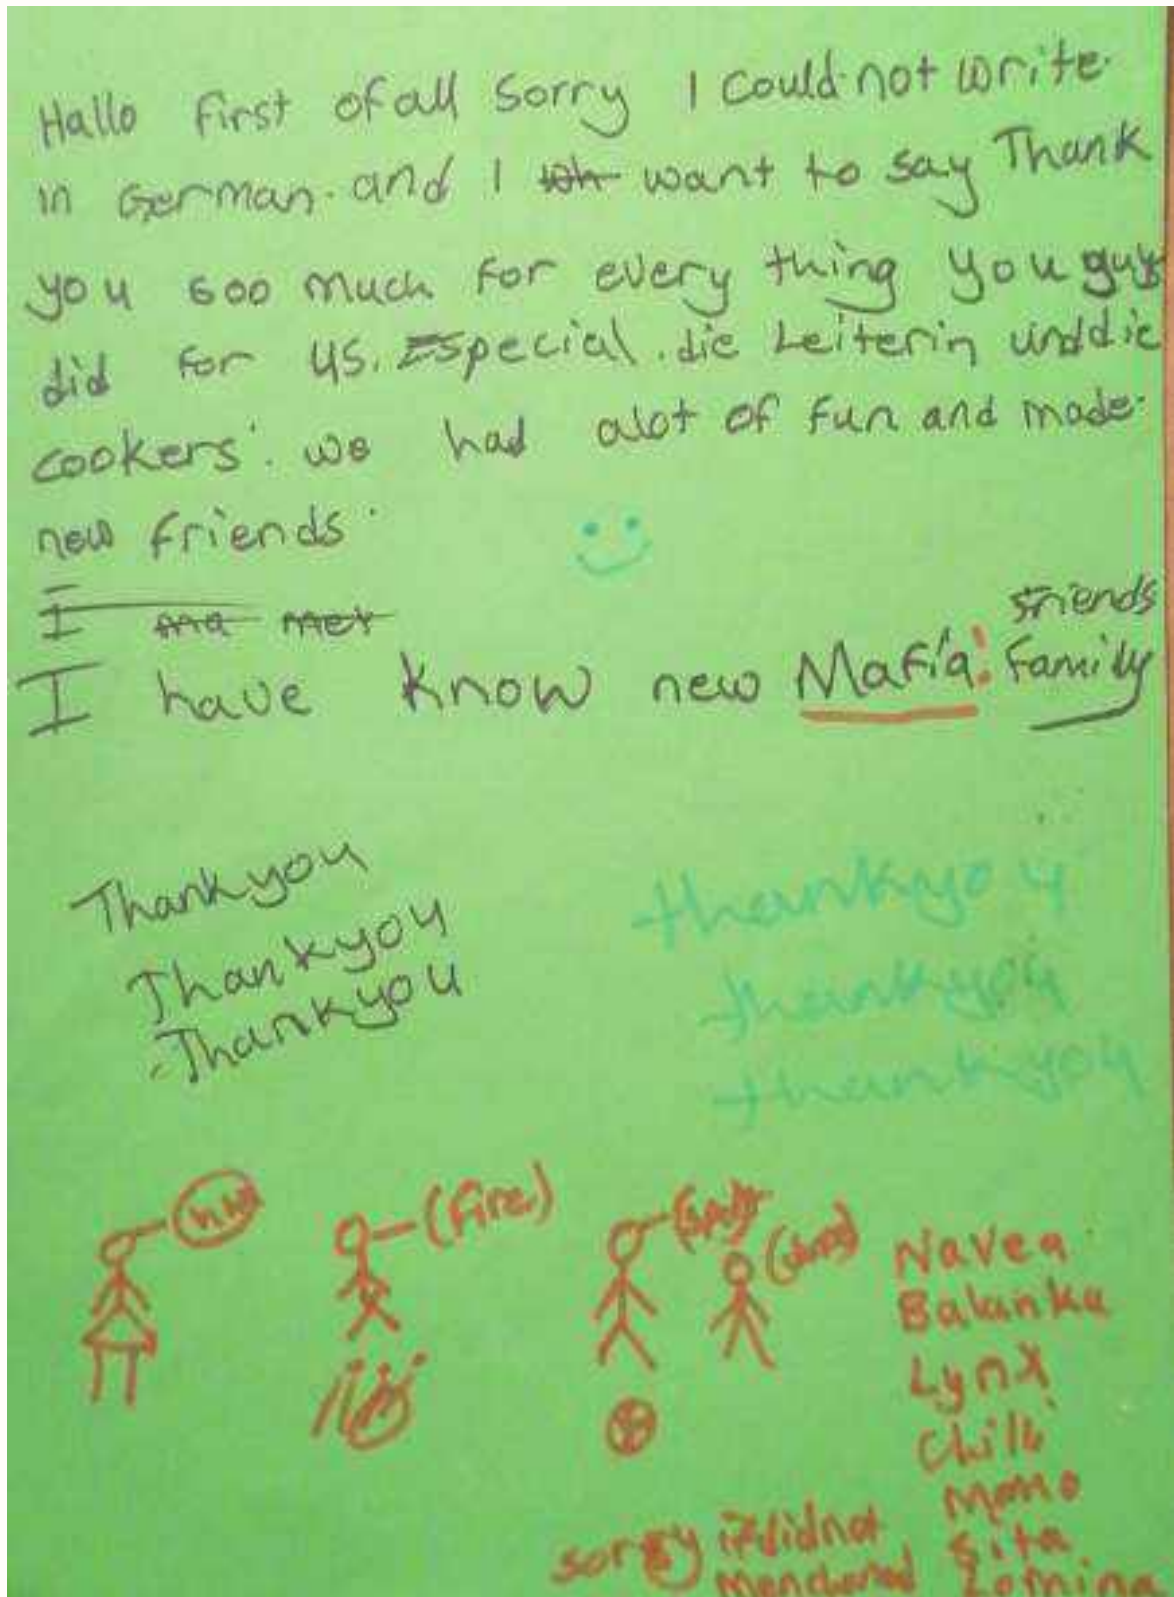 Hallo first of all sorry I could not write.
in German. and I want to say Thank
you soo much for every thing you guys
did for us. Especial. die Leiterin und die
cookers. we had alot of fun and made.
new friends.
I met
friends
I have know new Mafia! Family
Thankyou
Thankyou
Thankyou
thankyou
thankyou
thankyou
(fire)
Navea
Balanka
Lynx
Chilli
Momo
Sita
sorry if did not